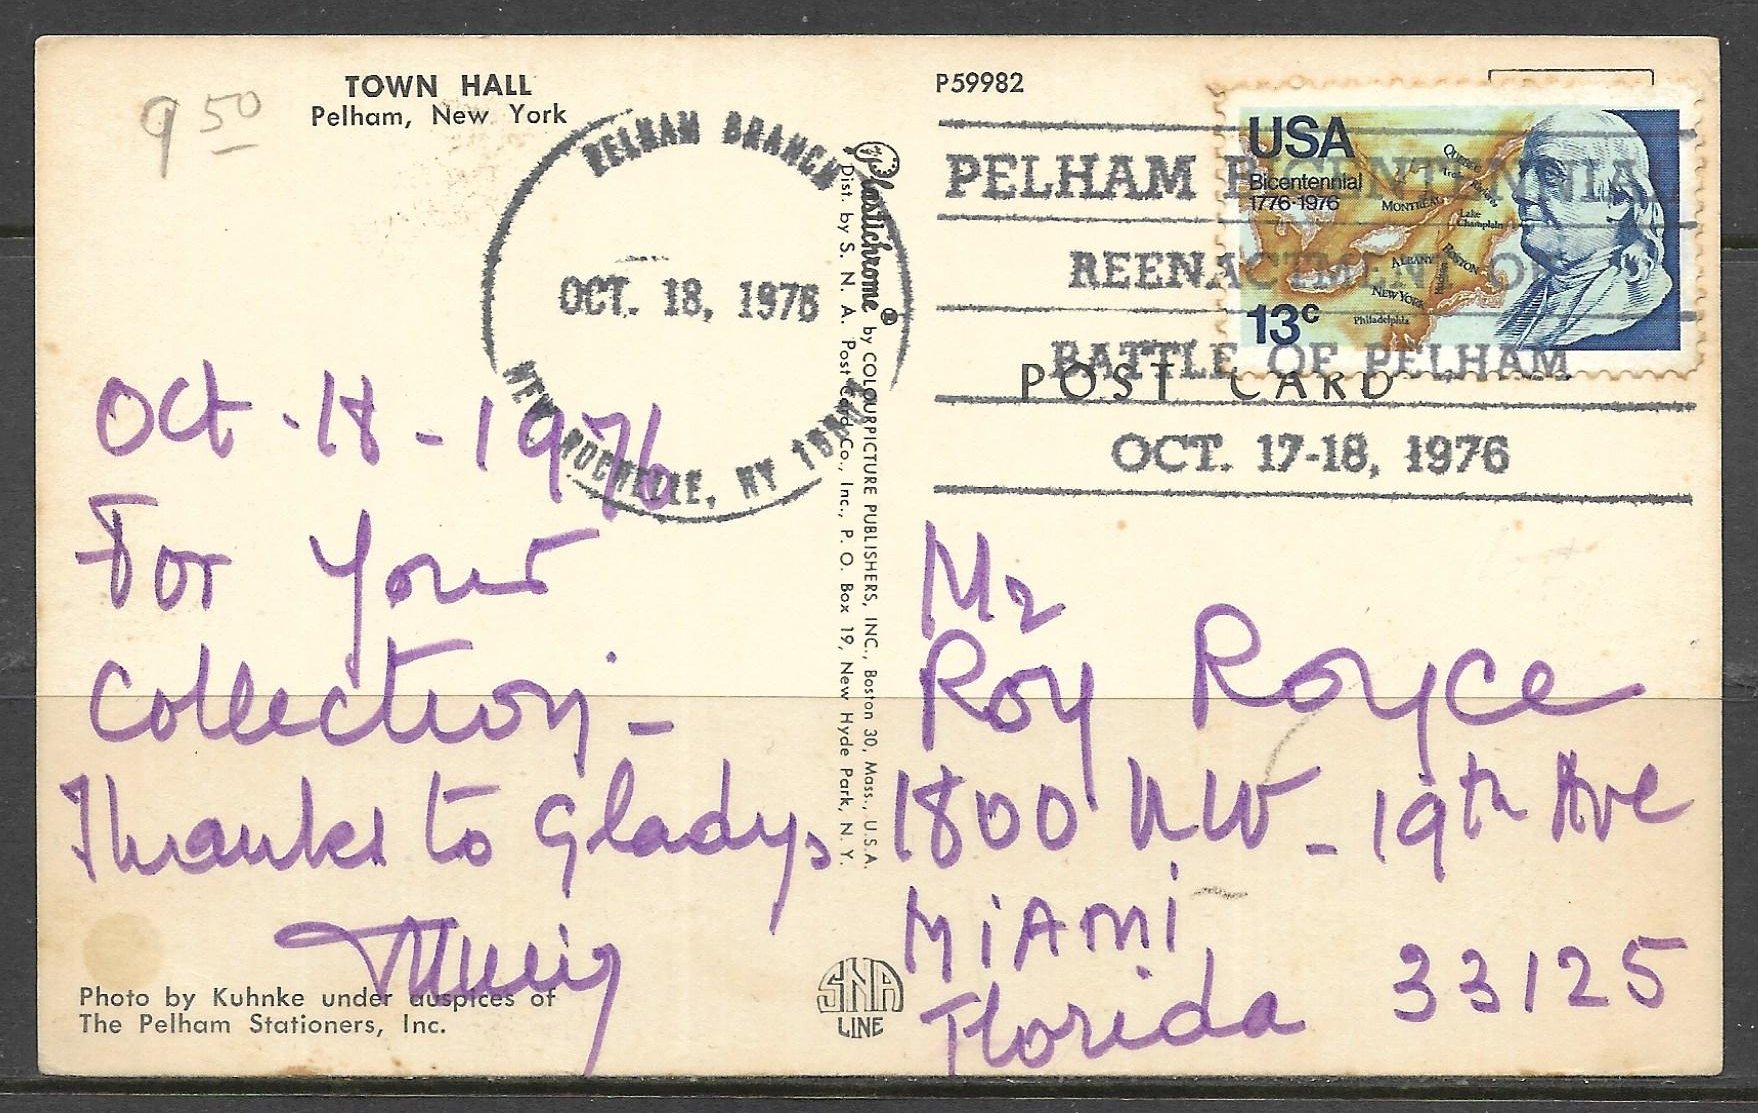 TOWN HALL
Pelham, New York
9 50
PELHAM BRANCH
OCT. 18, 1976
NEW ROCHELLE, NY
P59982
USA
Bicentennial
1776-1976
QUEBEC
MONTREAL
Lake
Champlain
ALBANY
BOSTON
NEW YORK
Philadelphia
13c
PELHAM BICENTENNIA
REENACTMENT OF
BATTLE OF PELHAM
OCT. 17-18, 1976
POST CARD
Plastichrome® by COLOURPICTURE PUBLISHERS, INC., Boston 30, Mass., U.S.A.
Dist. by S. N. A. Post Card Co., Inc., P. O. Box 19, New Hyde Park, N. Y.
Oct - 18 - 1976
For Your
Collection -
Thanks to Gladys
Mr
Roy Royce
1800 NW - 19th Ave
Miami
Florida 33125
Photo by Kuhnke under auspices of
The Pelham Stationers, Inc.
SNA
LINE